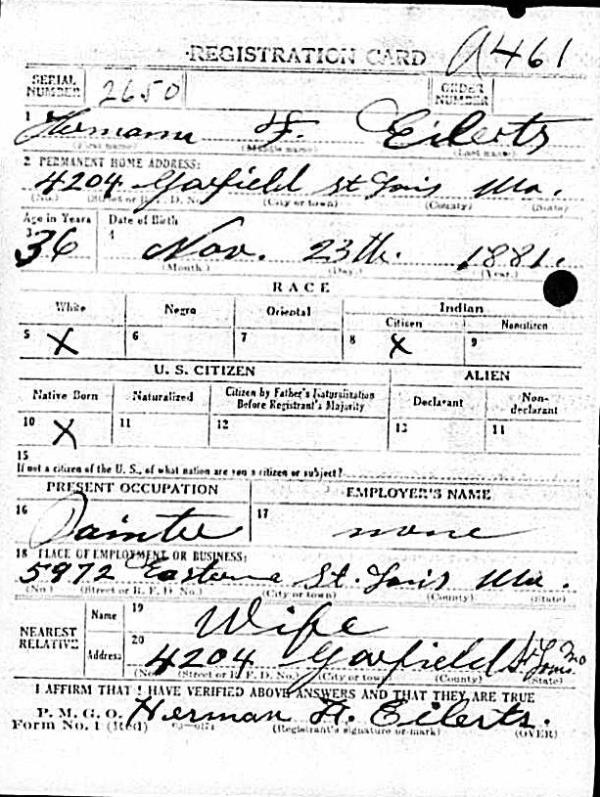 REGISTRATION CARD A461
SERIAL NUMBER 2650 ORDER NUMBER
1 Hermann F. Eilerts
(First name) (Middle name) (Last name)
2 PERMANENT HOME ADDRESS:
4204 Garfield St Louis Mo.
(No.) (Street or R. F. D. No.) (City or town) (County) (State)
Age in Years Date of Birth
3 36 4 Nov. 23th. 1881.
(Month.) (Day.) (Year.)
RACE
White Negro Oriental Indian
Citizen Noncitizen
5 X 6 7 8 X 9
U. S. CITIZEN ALIEN
Native Born Naturalized Citizen by Father's Naturalization Before Registrant's Majority Declarant Non-declarant
10 X 11 12 13 14
15
If not a citizen of the U. S., of what nation are you a citizen or subject?
PRESENT OCCUPATION EMPLOYER'S NAME
16 Painter 17 none
18 PLACE OF EMPLOYMENT OR BUSINESS:
5972 St. Louis Mo.
(No.) (Street or R. F. D. No.) (City or town) (County) (State)
NEAREST RELATIVE Name 19 Wife
Address 20 4204 Garfield St Louis. Mo
(No.) (Street or R. F. D. No.) (City or town) (County) (State)
I AFFIRM THAT I HAVE VERIFIED ABOVE ANSWERS AND THAT THEY ARE TRUE
P. M. G. O.
Form No. 1 (Red) Herman F. Eilerts.
(Registrant's signature or mark) (OVER)